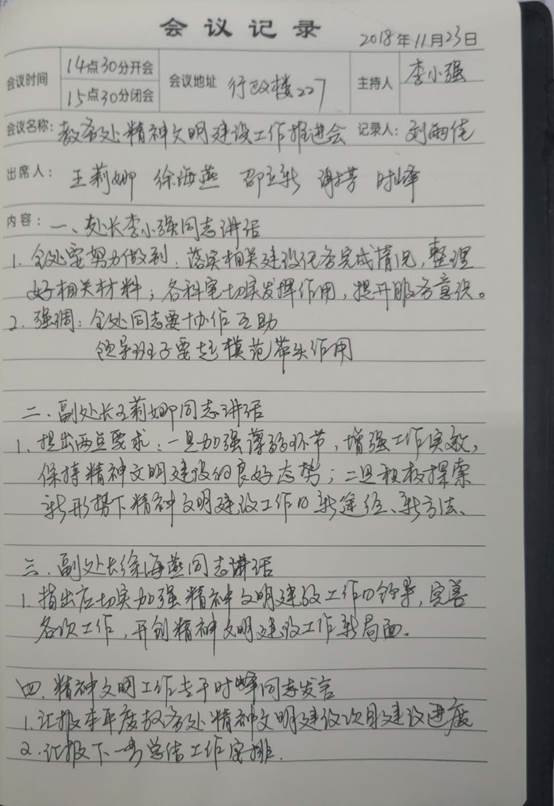 会议记录
2018年11月23日
会议时间 14点30分开会 15点30分闭会 会议地址 行政楼227 主持人 李小强
会议名称：教务处精神文明建设工作推进会 记录人：刘雨佳
出席人：王莉娜 徐海燕 邵立新 谢芳 时峰
内容：一、处长李小强同志讲话
1. 全处要努力做到：落实相关建设任务完成情况，整理
好相关材料；各科室切实发挥作用，提升服务意识。
2. 强调：全处同志要协作互助
领导班子要起模范带头作用
二、副处长王莉娜同志讲话
1. 提出两点要求：一是加强薄弱环节，增强工作实效，
保持精神文明建设的良好态势；二是积极探索
新形势下精神文明建设工作的新途径、新方法、
三、副处长徐海燕同志讲话
1. 指出应切实加强精神文明建设工作的领导，完善
各项工作，开创精神文明建设工作新局面．
四、精神文明工作专干时峰同志发言
1. 汇报本年度教务处精神文明建设项目建设进度
2. 汇报下一步总结工作安排．